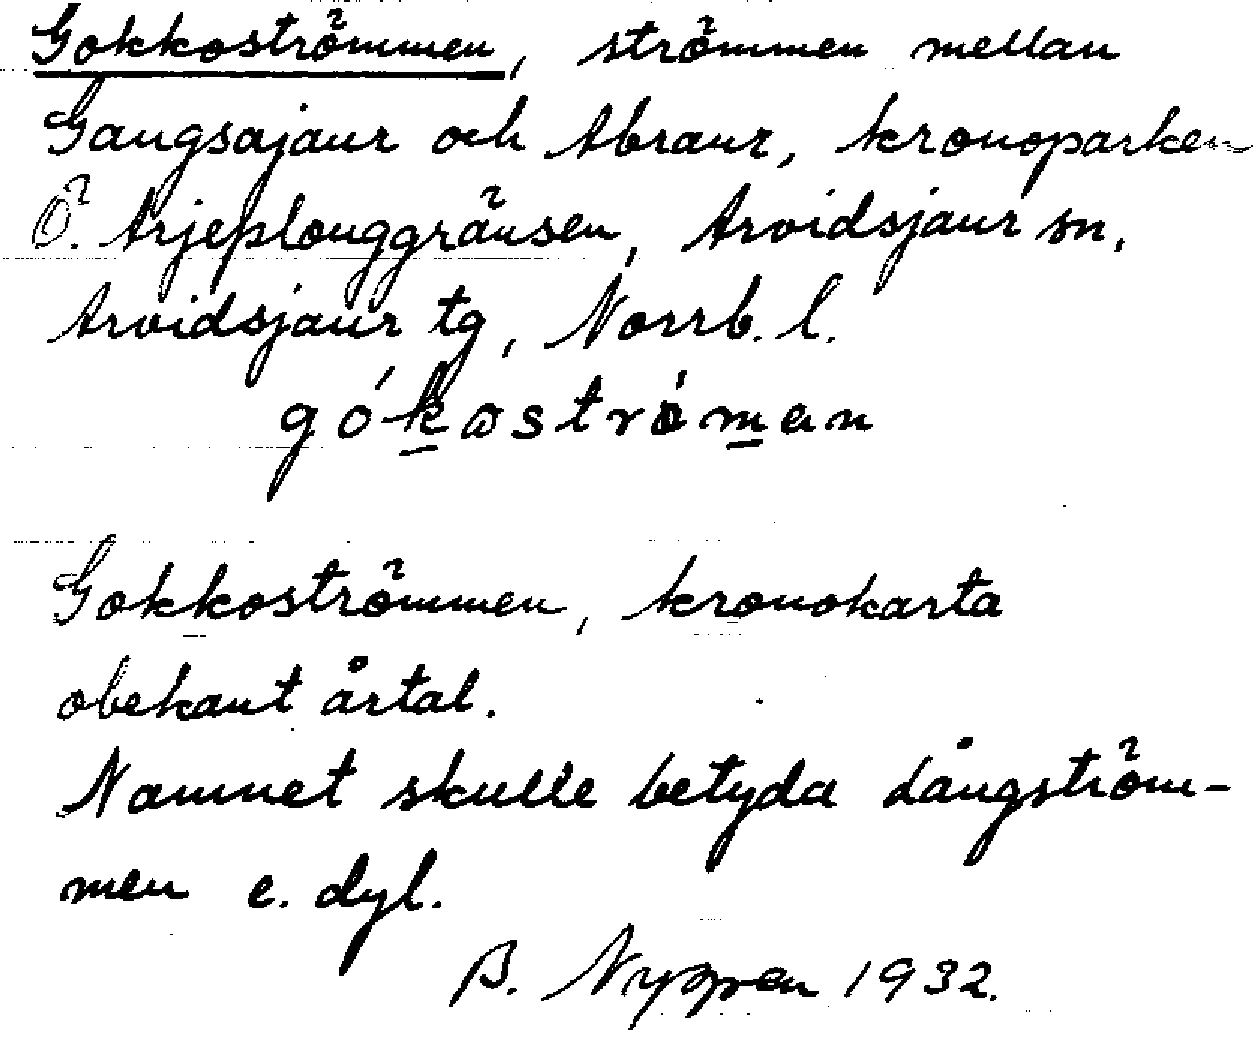 Gokkoströmmen, strömmen mellan
Gaugsajaur och Abraur, kronoparken
Ö. Arjeplouggränsen, Arvidsjaur sn,
Arvidsjaur tg, Norrb. l.
gókostróman
Gokkoströmmen, kronokarta
obekant årtal.
Namnet skulle betyda Långström-
men e. dyl.
B. Nygren 1932.